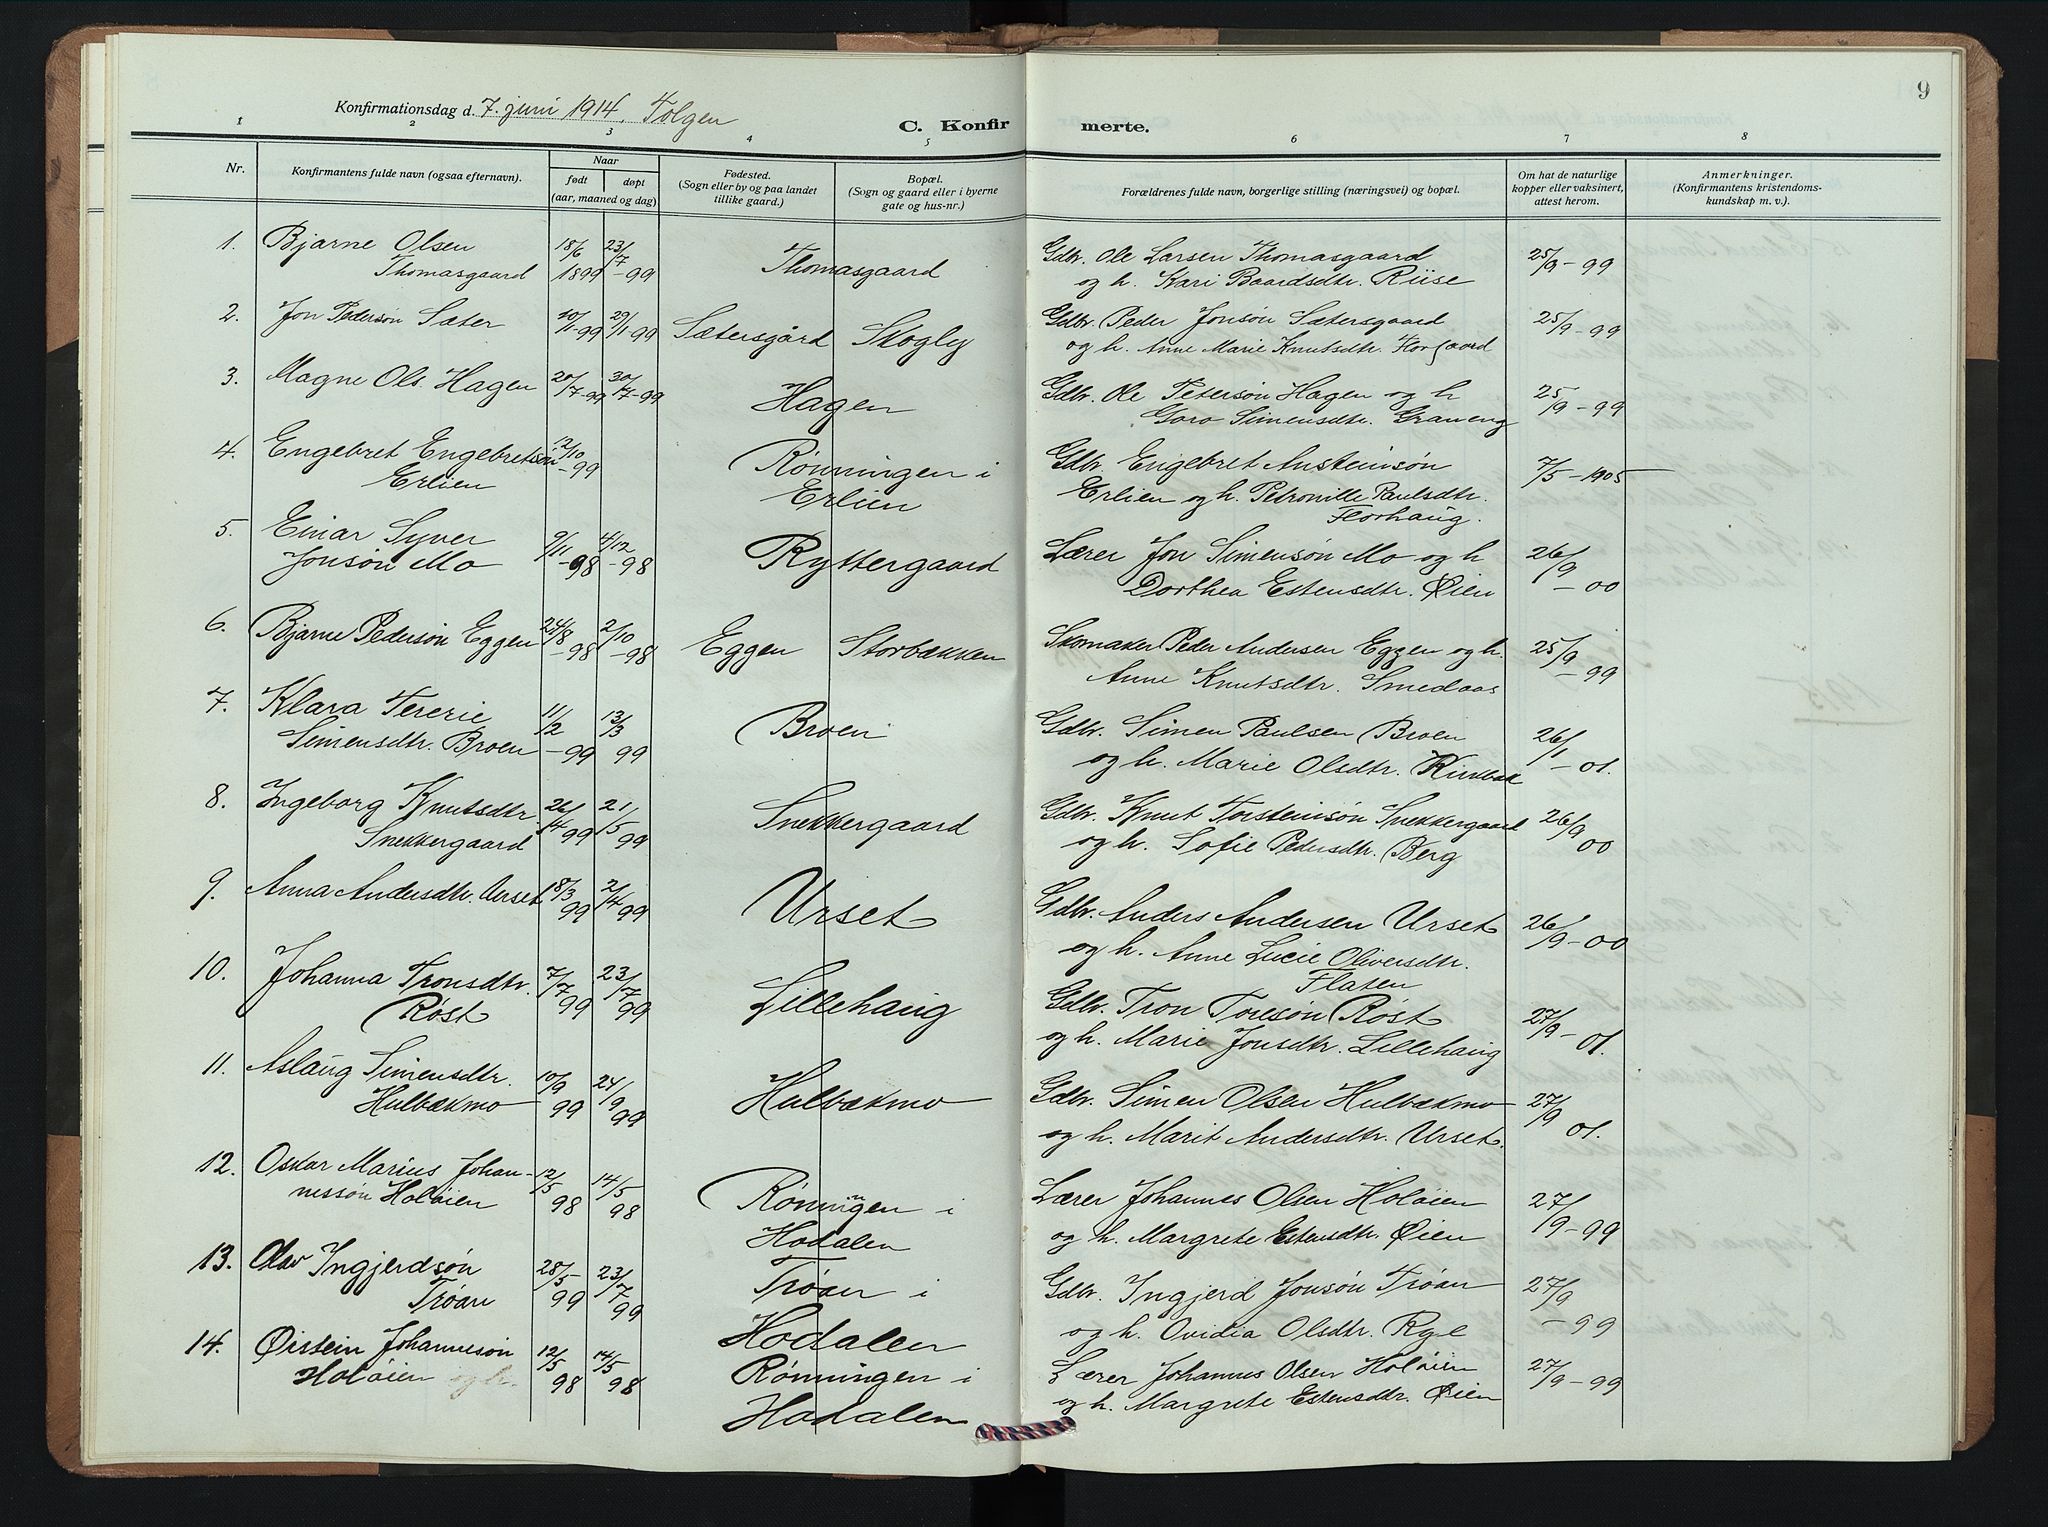 9
Konfirmationsdag d. 7. juni 1914. Tolgen
C. Konfirmerte.
1 2 3 4 5 6 7 8
Nr.
Konfirmantens fulde navn (ogsaa efternavn).
Naar
født døpt
(aar, maaned og dag)
Fødested.
(Sogn eller by og paa landet
tillike gaard.)
Bopæl.
(Sogn og gaard eller i byerne
gate og hus-nr.)
Forældrenes fulde navn, borgerlige stilling (næringsvei) og bopæl.
Om hat de naturlige
kopper eller vaksinert,
attest herom.
Anmerkninger.
(Konfirmantens kristendoms-
kundskap m. v.).
1. Bjarne Olsen 18/6 23/7 Thomasgaard Gdbr. Ole Larsen Thomasgaard 25/9-99
Thomasgaard 1899 -99 og h. Kari Baardsdtr. Riise
2. Jon Pedersøn Sæter 10/1-99 29/1-99 Sætersgård Skogly Gdbr. Peder Jonsøn Sætersgaard 25/9-99
og h. Anne Marie Knutsdtr. Horgaard
3. Magne Ols. Hagen 20/7-99 30/7-99 Hagen Gdbr. Ole Petersøn Hagen og h 25/9-99
Goro Simensdtr. Graneng
4. Engebret Engebretsøn 12/10-99 Rønningen i Gdbr. Engebret Ansteinsøn 7/5-1905
Erlien Erlien Erlien og h. Petronille Paulsdtr.
Florhaug.
5. Einar Syver 9/11-98 4/12-98 Ryttergaard Lærer Jon Simensøn Mo og h 26/9-00
Jonsøn Mo Dorthea Estensdtr. Øien
6. Bjarne Pedersøn Eggen 24/8-98 2/10-98 Eggen Storbækken Skomaker Peder Andersen Eggen og h. 25/9-99
Anne Knutsdtr. Smedaas
7. Klara Tererie 11/2-99 13/3 99 Broen Gdbr. Simen Paulsen Broen 26/1-01.
Simensdtr. Broen og h. Marie Olsdtr. Kirkbak
8. Ingeborg Knutsdtr. 26/4 99 21/5 99 Snekkergaard Gdbr. Knut Torsteinsøn Snekkergaard 26/9 00
Snekkergaard og h. Sofie Pedersdtr. Berg
9. Anna Andersdtr. Urset 18/3 99 2/4 99 Urset Gdbr. Anders Andersen Urset 26/9-00
og h. Anne Lucie Oliversdtr.
Flaten
10. Johanna Tronsdtr. 7/7 99 23/7 99 Lillehaug Gdbr. Tron Toresøn Røst 27/9-01.
Røst og h. Marie Jonsdtr. Lillehaug
11. Aslaug Simensdtr. 10/9 99 24/9 99 Hulbækmo Gdbr. Simen Olsen Hulbækmo 27/9 01.
Hulbækmo og h. Marit Andersdtr. Urset.
12. Oskar Marius Johan- 12/5 98 14/5 98 Rønningen i Lærer Johannes Olsen Holøien 27/9-99
nessøn Holøien Hodalen og h. Margrete Estensdtr. Øien
13. Olav Ingjerdsøn 28/5 99 23/7 99 Trøan i Gdbr. Ingjerd Jonsøn Trøan 27/9-99
Trøan Hodalen og h. Ovidia Olsdtr. Rye
14. Øistein Johannesøn 12/5 98 14/5 98 Rønningen i Lærer Johannes Olsen Holøien 27/9-99
Holøien Hodalen og h. Margrete Estensdtr. Øien